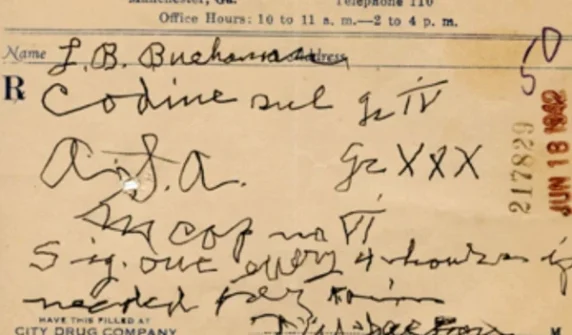 Manchester, Ga. Telephone 110
Office Hours: 10 to 11 a. m.—2 to 4 p. m.
Name L. B. Buchanan Address
R
Codine sul gr IV
A.S.A. gr XXX
M cap no VI
Sig. one every 4 hours if
needed for pain
HAVE THIS FILLED AT
CITY DRUG COMPANY
M.
217829
JUN 18 1942